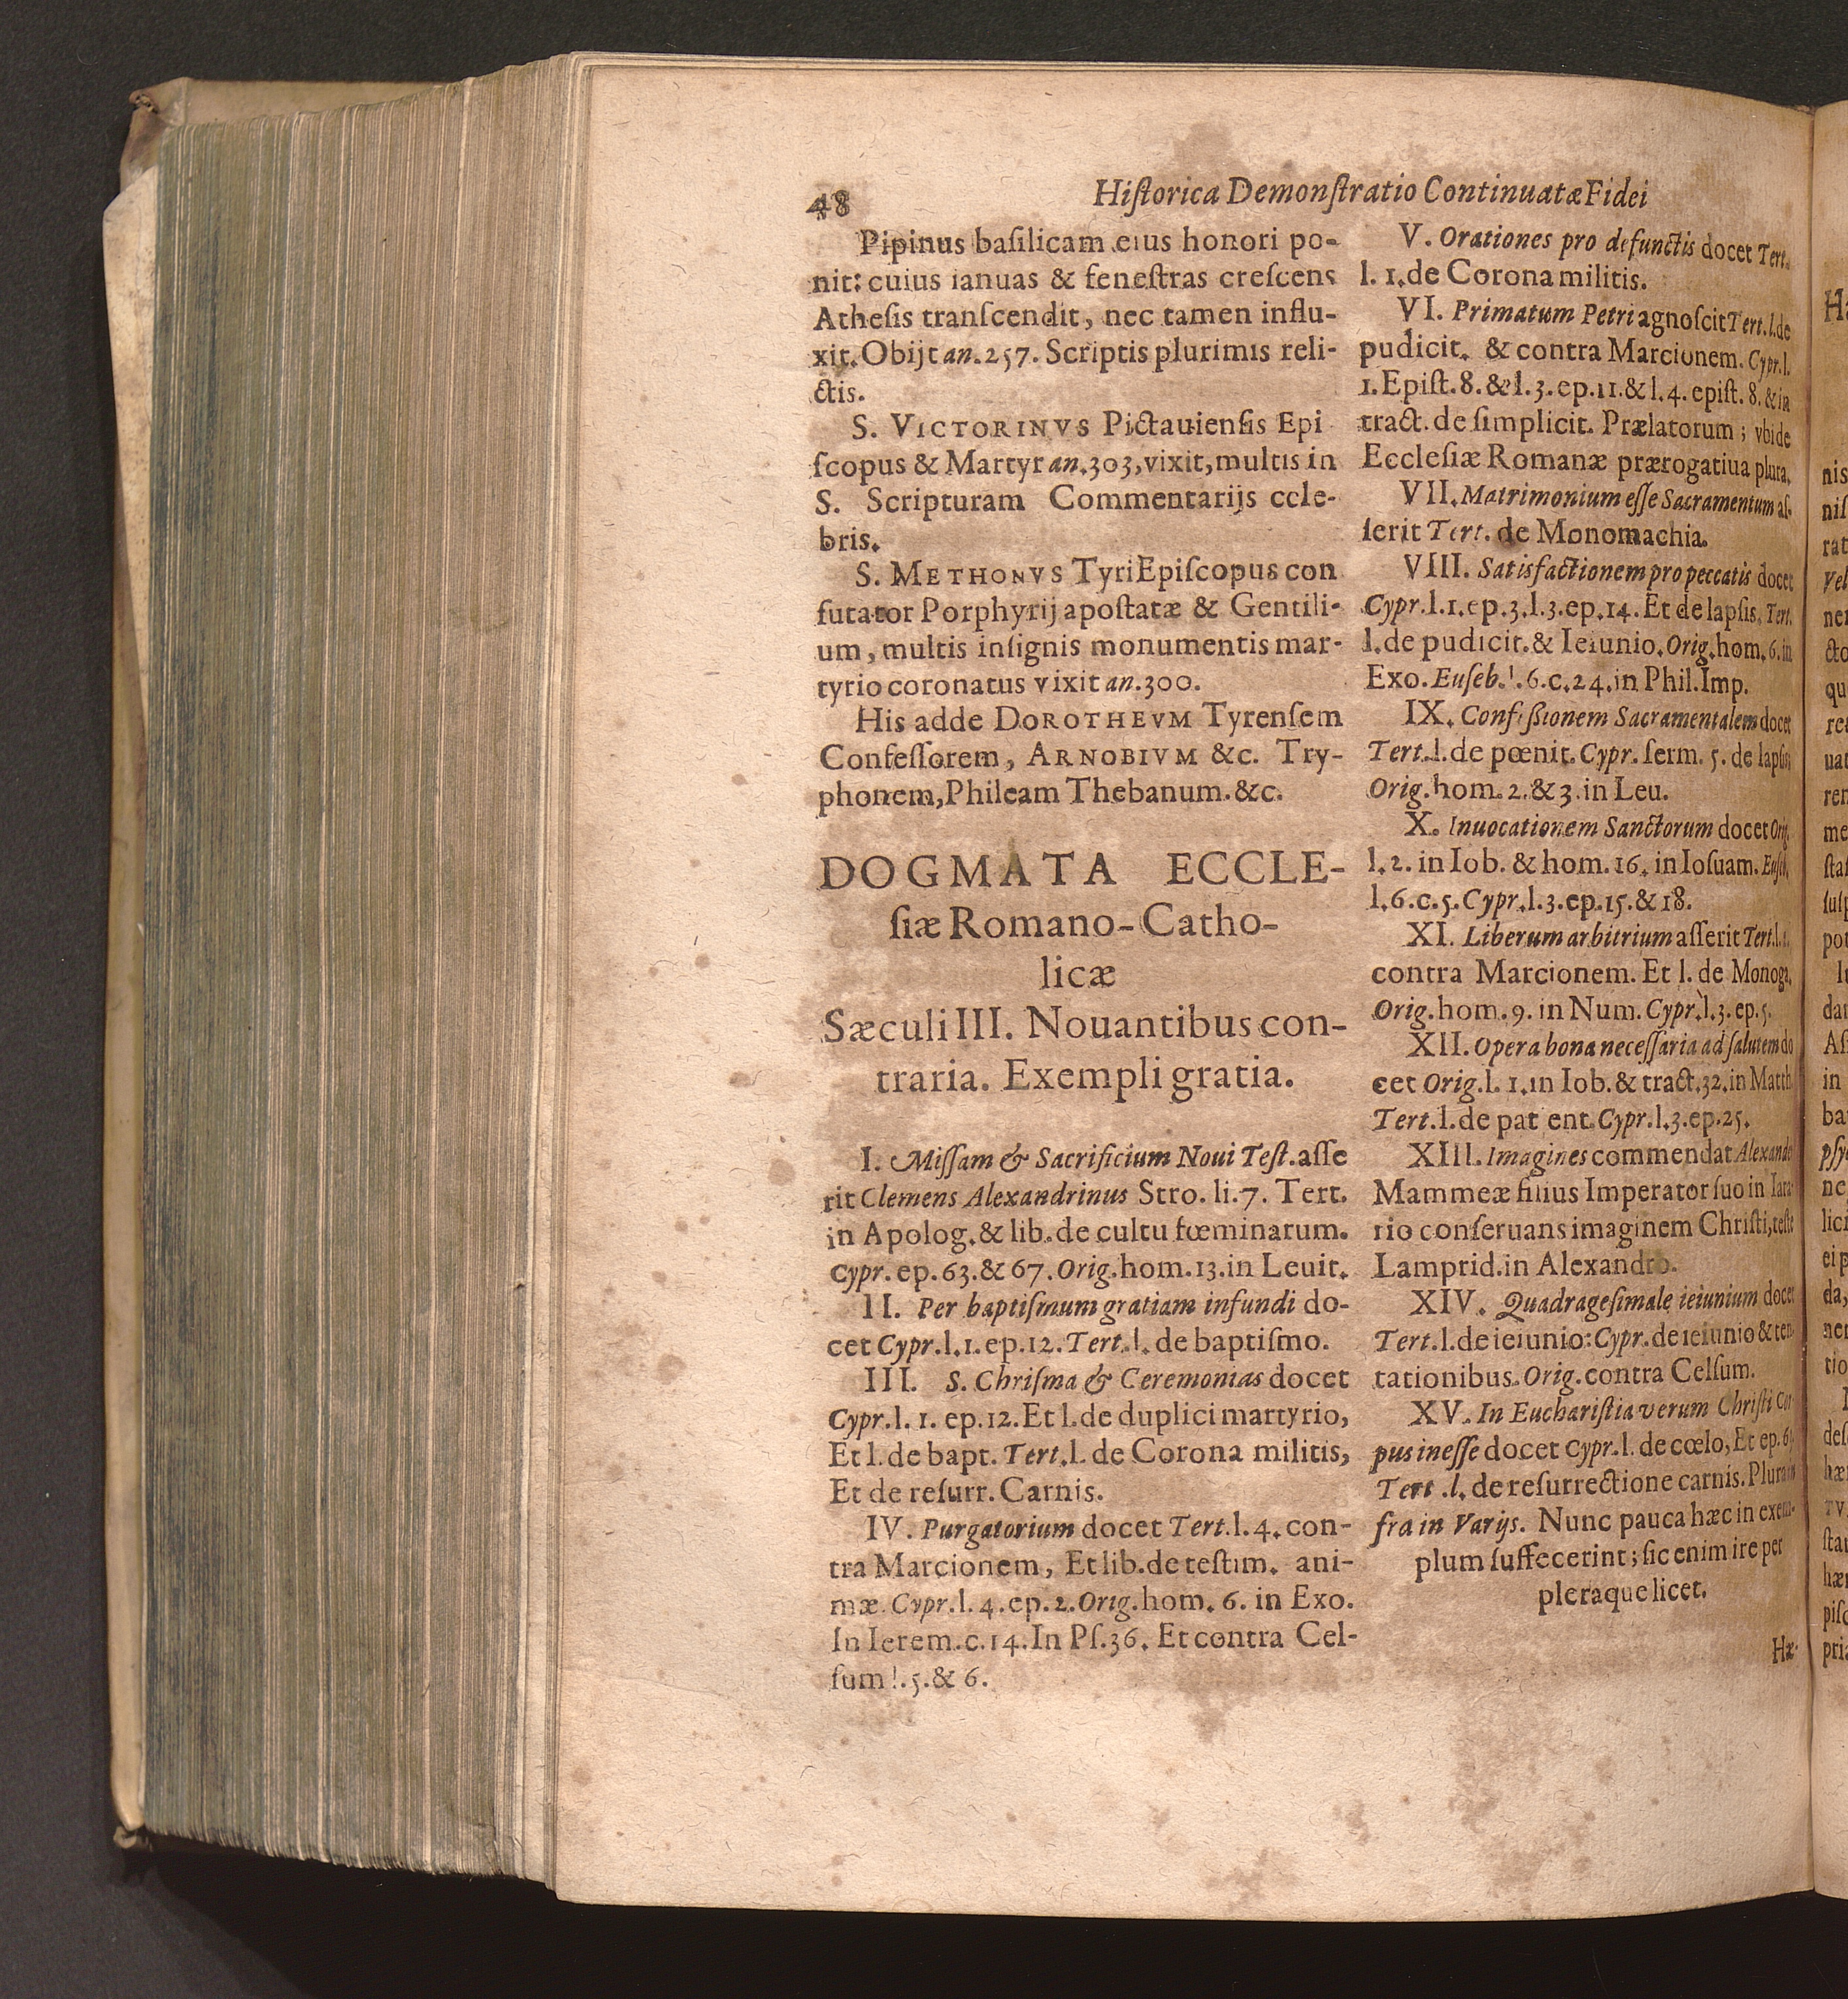 48
Historica Demonstratio Continuatæ Fidei
Pipinus basilicam eius honori po-
nit: cuius ianuas & fenestras crescens
Athesis transcendit, nec tamen influ-
xit. Obijt an. 257. Scriptis plurimis reli-
ctis.
S. VICTORINVS Pictauiensis Epi
scopus & Martyr an. 303, vixit, multis in
S. Scripturam Commentarijs cele-
bris.
S. METHONVS Tyri Episcopus con
futator Porphyrij apostatæ & Gentili-
um, multis insignis monumentis mar-
tyrio coronatus vixit an. 300.
His adde DOROTHEVM Tyrensem
Confessorem, ARNOBIVM &c. Try-
phonem, Phileam Thebanum. &c.
DOGMATA ECCLE-
siæ Romano-Catho-
licæ
Sæculi III. Nouantibus con-
traria. Exempli gratia.
I. Missam & Sacrificium Noui Test. asse
rit Clemens Alexandrinus Stro. li. 7. Tert.
in Apolog. & lib. de cultu fœminarum.
Cypr. ep. 63. & 67. Orig. hom. 13. in Leuit.
II. Per baptismum gratiam infundi do-
cet Cypr. l. 1. ep. 12. Tert. l. de baptismo.
III. S. Chrisma & Ceremonias docet
Cypr. l. 1. ep. 12. Et l. de duplici martyrio,
Et l. de bapt. Tert. l. de Corona militis,
Et de resurr. Carnis.
IV. Purgatorium docet Tert. l. 4. con-
tra Marcionem, Et lib. de testim. ani-
mæ. Cypr. l. 4. ep. 2. Orig. hom. 6. in Exo.
In Ierem. c. 14. In Ps. 36. Et contra Cel-
sum l. 5. & 6.
V. Orationes pro defunctis docet Tert.
l. 1. de Corona militis.
VI. Primatum Petri agnoscit Tert. l. de
pudicit. & contra Marcionem. Cypr. l.
1. Epist. 8. & l. 3. ep. 11. & l. 4. epist. 8. & in
tract. de simplicit. Prælatorum; vbi de
Ecclesiæ Romanæ prærogatiua plura.
VII. Matrimonium esse Sacramentum as-
serit Tert. de Monomachia.
VIII. Satisfactionem pro peccatis docet
Cypr. l. 1. ep. 3. l. 3. ep. 14. Et de lapsis. Tert.
l. de pudicit. & Ieiunio. Orig. hom. 6. in
Exo. Euseb. l. 6. c. 24. in Phil. Imp.
IX. Confessionem Sacramentalem docet
Tert. l. de pœnit. Cypr. serm. 5. de lapsis
Orig. hom. 2. & 3. in Leu.
X. Inuocationem Sanctorum docet Orig.
l. 2. in Iob. & hom. 16. in Iosuam. Euseb.
l. 6. c. 5. Cypr. l. 3. ep. 15. & 18.
XI. Liberum arbitrium asserit Tert. l.
contra Marcionem. Et l. de Monoga.
Orig. hom. 9. in Num. Cypr. l. 3. ep. 5.
XII. Opera bona necessaria ad salutem do
cet Orig. l. 1. in Iob. & tract. 32. in Matth.
Tert. l. de pat ent. Cypr. l. 3. ep. 25.
XIII. Imagines commendat Alexander
Mammeæ filius Imperator suo in Lara-
rio conseruans imaginem Christi, teste
Lamprid. in Alexandro.
XIV. Quadragesimale ieiunium docet
Tert. l. de ieiunio: Cypr. de ieiunio & ten-
tationibus. Orig. contra Celsum.
XV. In Eucharistia verum Christi Cor-
pus inesse docet Cypr. l. de cœlo, Et ep. 63
Tert. l. de resurrectione carnis. Plura in
fra in Varijs. Nunc pauca hæc in exem-
plum suffecerint; sic enim ire per
pleraque licet.
Hæ-